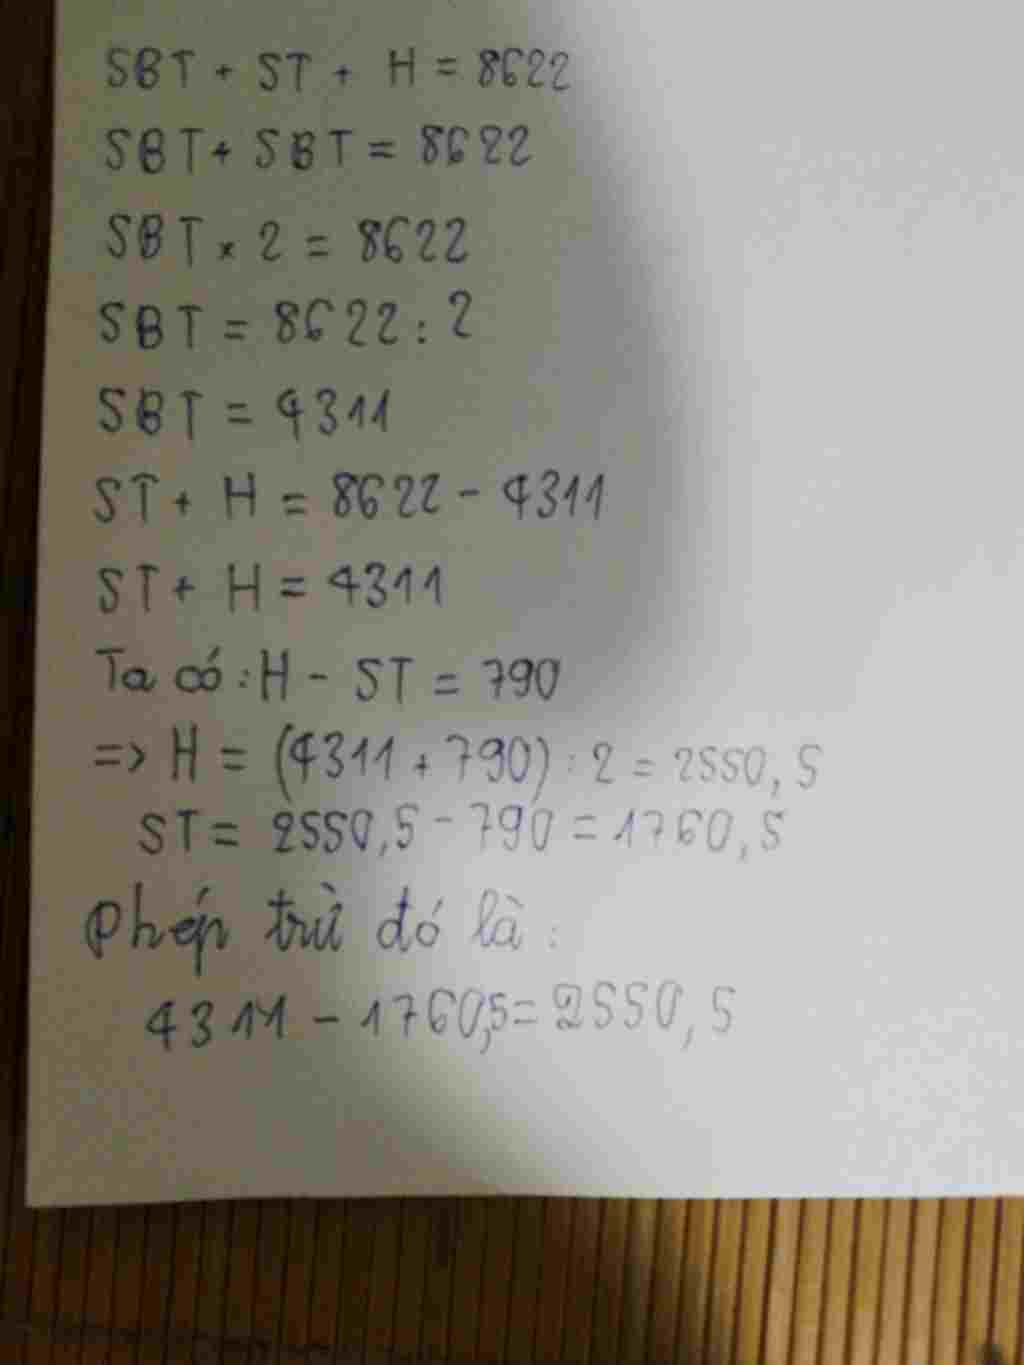 SBT + ST + H = 8622
SBT + SBT = 8622
SBT x 2 = 8622
SBT = 8622 : 2
SBT = 4311
ST + H = 8622 - 4311
ST + H = 4311
Ta có : H - ST = 790
=> H = (4311 + 790) : 2 = 2550,5
ST = 2550,5 - 790 = 1760,5
Phép trừ đó là :
4311 - 1760,5 = 2550,5